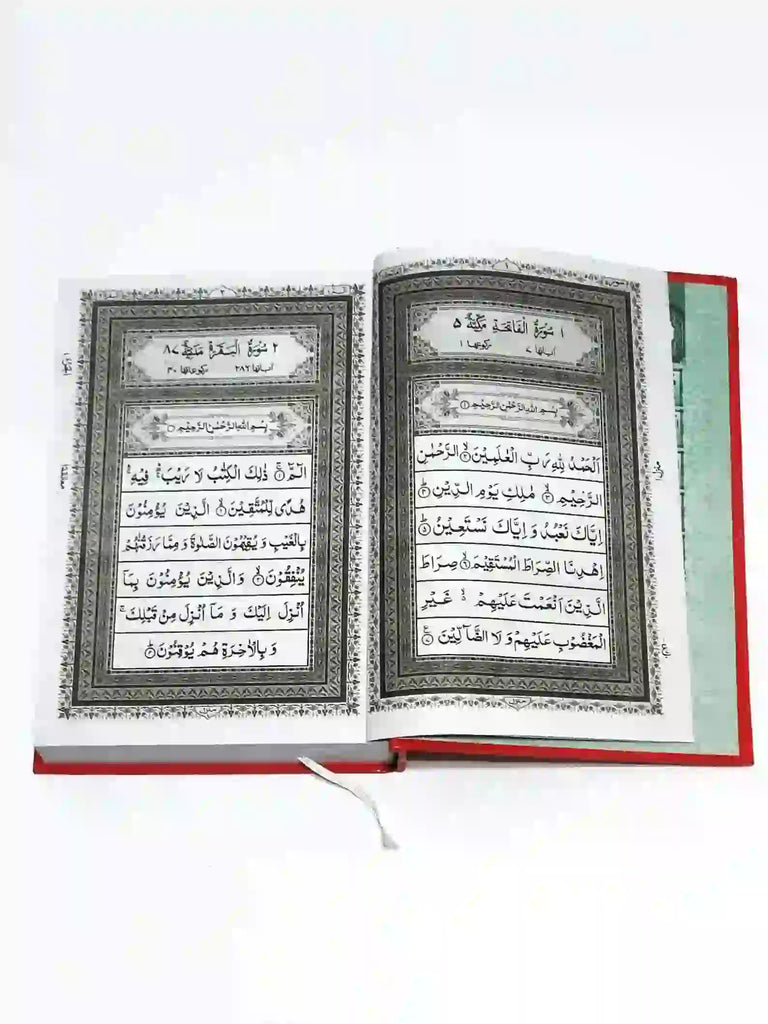 ١ سُوْرَةُ الْفَاتِحَةِ مَكِّيَّةٌ ٥
اٰياتها ٧ ركوعها ١
بِسْمِ اللهِ الرَّحْمٰنِ الرَّحِيْمِ
اَلْحَمْدُ لِلّٰهِ رَبِّ الْعٰلَمِيْنَ الرَّحْمٰنِ
الرَّحِيْمِ مٰلِكِ يَوْمِ الدِّيْنِ
اِيَّاكَ نَعْبُدُ وَ اِيَّاكَ نَسْتَعِيْنُ
اِهْدِنَا الصِّرَاطَ الْمُسْتَقِيْمَ صِرَاطَ
الَّذِيْنَ اَنْعَمْتَ عَلَيْهِمْ غَيْرِ
الْمَغْضُوْبِ عَلَيْهِمْ وَ لَا الضَّآلِّيْنَ
منزل
٢ سُوْرَةُ الْبَقَرَةِ مَدَنِيَّةٌ ٨٧
اٰياتها ٢٨٦ ركوعاتها ٤٠
بِسْمِ اللهِ الرَّحْمٰنِ الرَّحِيْمِ
الٓمّٓ ذٰلِكَ الْكِتٰبُ لَا رَيْبَ فِيْهِ
هُدًى لِّلْمُتَّقِيْنَ الَّذِيْنَ يُؤْمِنُوْنَ
بِالْغَيْبِ وَ يُقِيْمُوْنَ الصَّلٰوةَ وَ مِمَّا رَزَقْنٰهُمْ
يُنْفِقُوْنَ وَالَّذِيْنَ يُؤْمِنُوْنَ بِمَآ
اُنْزِلَ اِلَيْكَ وَ مَآ اُنْزِلَ مِنْ قَبْلِكَ
وَ بِالْاٰخِرَةِ هُمْ يُوْقِنُوْنَ
منزل